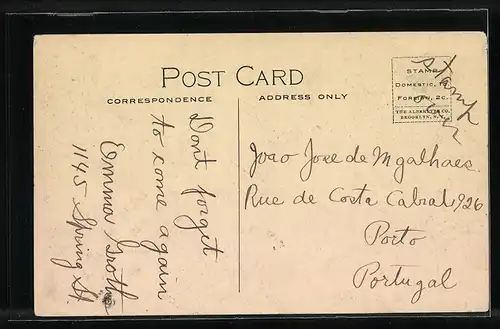 POST CARD
CORRESPONDENCE
ADDRESS ONLY
STAMP
DOMESTIC, 1c.
FOREIGN, 2c.
THE ALBERTYPE CO.
BROOKLYN, N.Y.
Stamp
Dont forget
to come again
Emma
1145 Spring St.
Joao Jose de Mgalhaes
Rue de Costa Cabral 926
Porto
Portugal